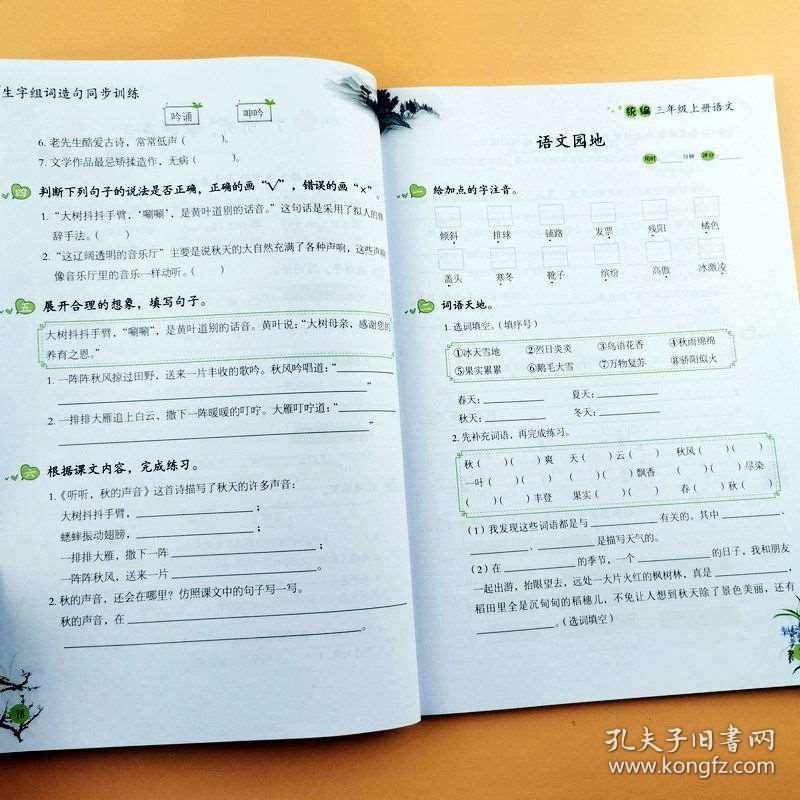 生字组词造句同步训练
吟诵 呻吟
6. 老先生酷爱古诗，常常低声（ ）。
7. 文学作品最忌矫揉造作，无病（ ）。
四 判断下列句子的说法是否正确，正确的画“√”，错误的画“×”。
1. “大树抖抖手臂，‘唰唰’，是黄叶道别的话音。”这句话是采用了拟人的修
辞手法。（ ）
2. “这辽阔透明的音乐厅”主要是说秋天的大自然充满了各种声响，这些声响
像音乐厅里的音乐一样动听。（ ）
五 展开合理的想象，填写句子。
大树抖抖手臂，“唰唰”，是黄叶道别的话音。黄叶说：“大树母亲，感谢您的
养育之恩。”
1. 一阵阵秋风掠过田野，送来一片丰收的歌吟。秋风吟唱道：“
”
2. 一排排大雁追上白云，撒下一阵暖暖的叮咛。大雁叮咛道：“
”
六 根据课文内容，完成练习。
1.《听听，秋的声音》这首诗描写了秋天的许多声音：
大树抖抖手臂，；
蟋蟀振动翅膀，；
一排排大雁，撒下一阵；
一阵阵秋风，送来一片。
2. 秋的声音，还会在哪里？仿照课文中的句子写一写。
秋的声音，在
。
18
统编 三年级上册语文
语文园地
用时 分钟 评分
一 给加点的字注音。
倾斜 排球 铺路 发票 残阳 橘色
盖头 寒冬 靴子 缤纷 高傲 冰激凌
二 词语天地。
1. 选词填空。（填序号）
①冰天雪地 ②烈日炎炎 ③鸟语花香 ④秋雨绵绵
⑤果实累累 ⑥鹅毛大雪 ⑦万物复苏 ⑧骄阳似火
春天： 夏天：
秋天： 冬天：
2. 先补充词语，再完成练习。
秋（ ）（ ）爽 天（ ）云（ ） 秋风（ ）（ ）
一叶（ ）（ ） （ ）（ ）飘香 （ ）（ ）尽染
（ ）（ ）丰登 果实（ ）（ ） 春（ ）秋（ ）
（1）我发现这些词语都是与 有关的。其中 、
、 是描写天气的。
（2）在 的季节，一个 的日子，我和朋友
一起出游，抬眼望去，远处一大片火红的枫树林，真是 ，
稻田里全是沉甸甸的稻穗儿，不免让人想到秋天除了景色美丽，还有
。（选词填空）
孔夫子旧书网
www.kongfz.com